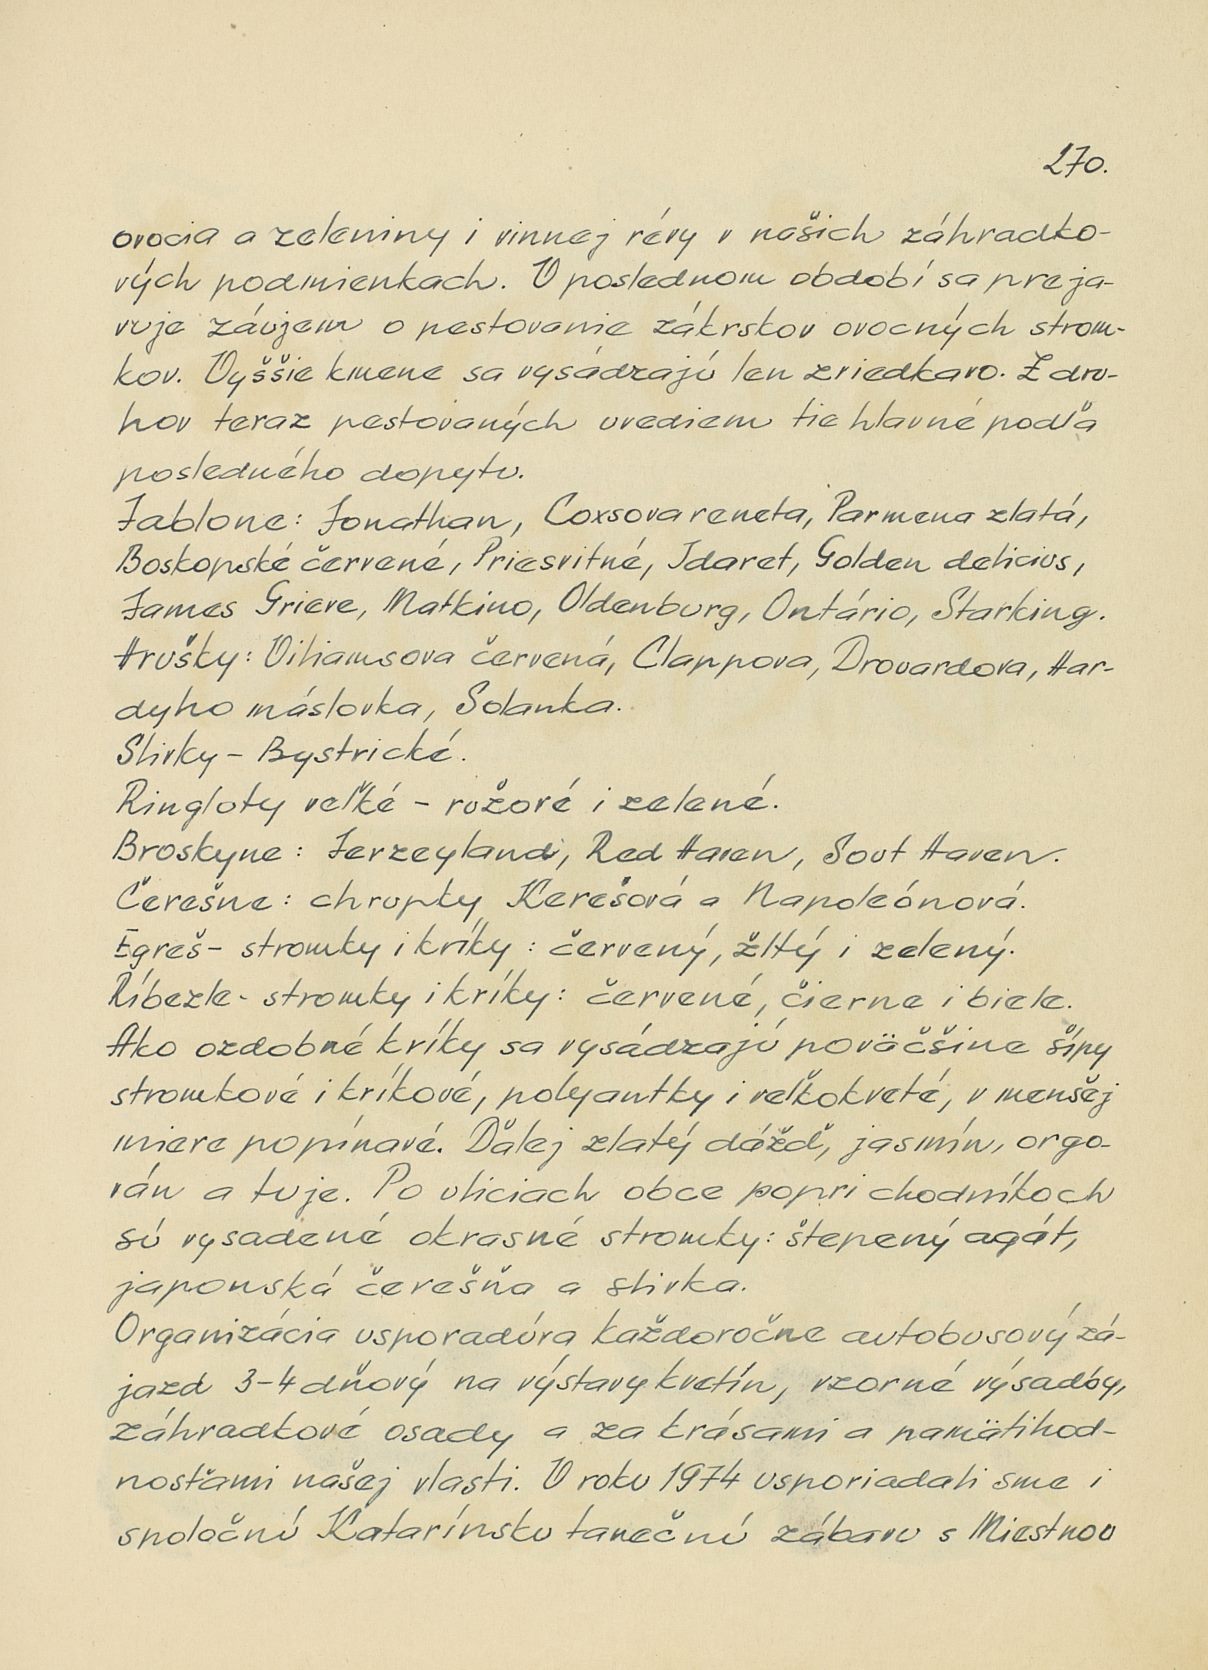 270.
ovocia a zeleniny i vinnej révy v našich záhradko-
vých podmienkach. V poslednom období sa preja-
vuje záujem o pestovanie zákrskov ovocných strom-
kov. Vyššie kmene sa vysádzajú len zriedkavo. Z dru-
hov teraz pestovaných uvediem tie hlavné podľa
posledného dopytu.
Jablone: Jonathan, Coxsova reneta, Parmena zlatá,
Boskopské červené, Priesvitné, Idaret, Golden delicius,
James Grieve, Matkino, Oldenburg, Ontário, Starking.
Hrušky: Viliamsova červená, Clappova, Drouardova, Har-
dyho máslovka, Solanka.
Slivky - Bystrické.
Ringloty veľké - ružové i zelené.
Broskyne: Jerzeyland, Red Haven, Sout Haven.
Čerešne: chrupky Kerešová a Napoleónová.
Egreš - stromky i kríky: červený, žltý i zelený.
Ríbezle - stromky i kríky: červené, čierne i biele.
Ako ozdobné kríky sa vysádzajú poväčšine šípy
stromkové i kríkové, polyantky i veľkokveté, v menšej
miere popínavé. Ďalej zlatý dážď, jasmín, orgo-
ván a tuje. Po uliciach obce popri chodníkoch
sú vysadené okrasné stromky: štepený agát,
japonská čerešňa a slivka.
Organizácia usporadúra každoročne autobusový zá-
jazd 3-4 dňový na výstavy kvetín, vzorné výsadby,
záhradkové osady a za krásami a pamätihod-
nosťami našej vlasti. V roku 1974 usporiadali sme i
spoločnú Katarínsku tanečnú zábavu s Miestnou